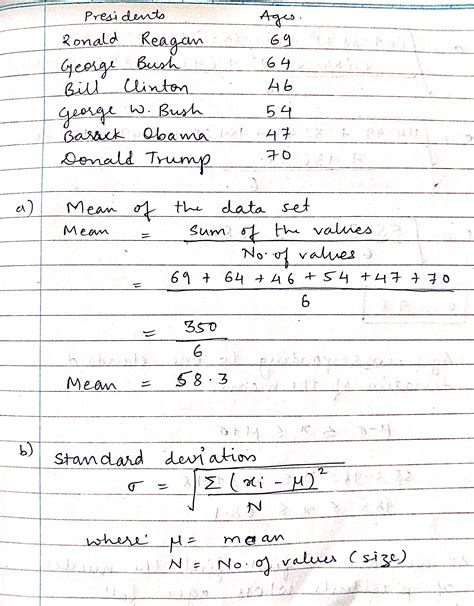 Presidents Ages.
Ronald Reagan 69
George Bush 64
Bill Clinton 46
George W. Bush 54
Barack Obama 47
Donald Trump 70
a) Mean of the data set
Mean = Sum of the values / No. of values
= 69 + 64 + 46 + 54 + 47 + 70 / 6
= 350 / 6
Mean = 58.3
b) Standard deviation
σ = √(Σ(xi - μ)² / N)
where μ = mean
N = No. of values (size)